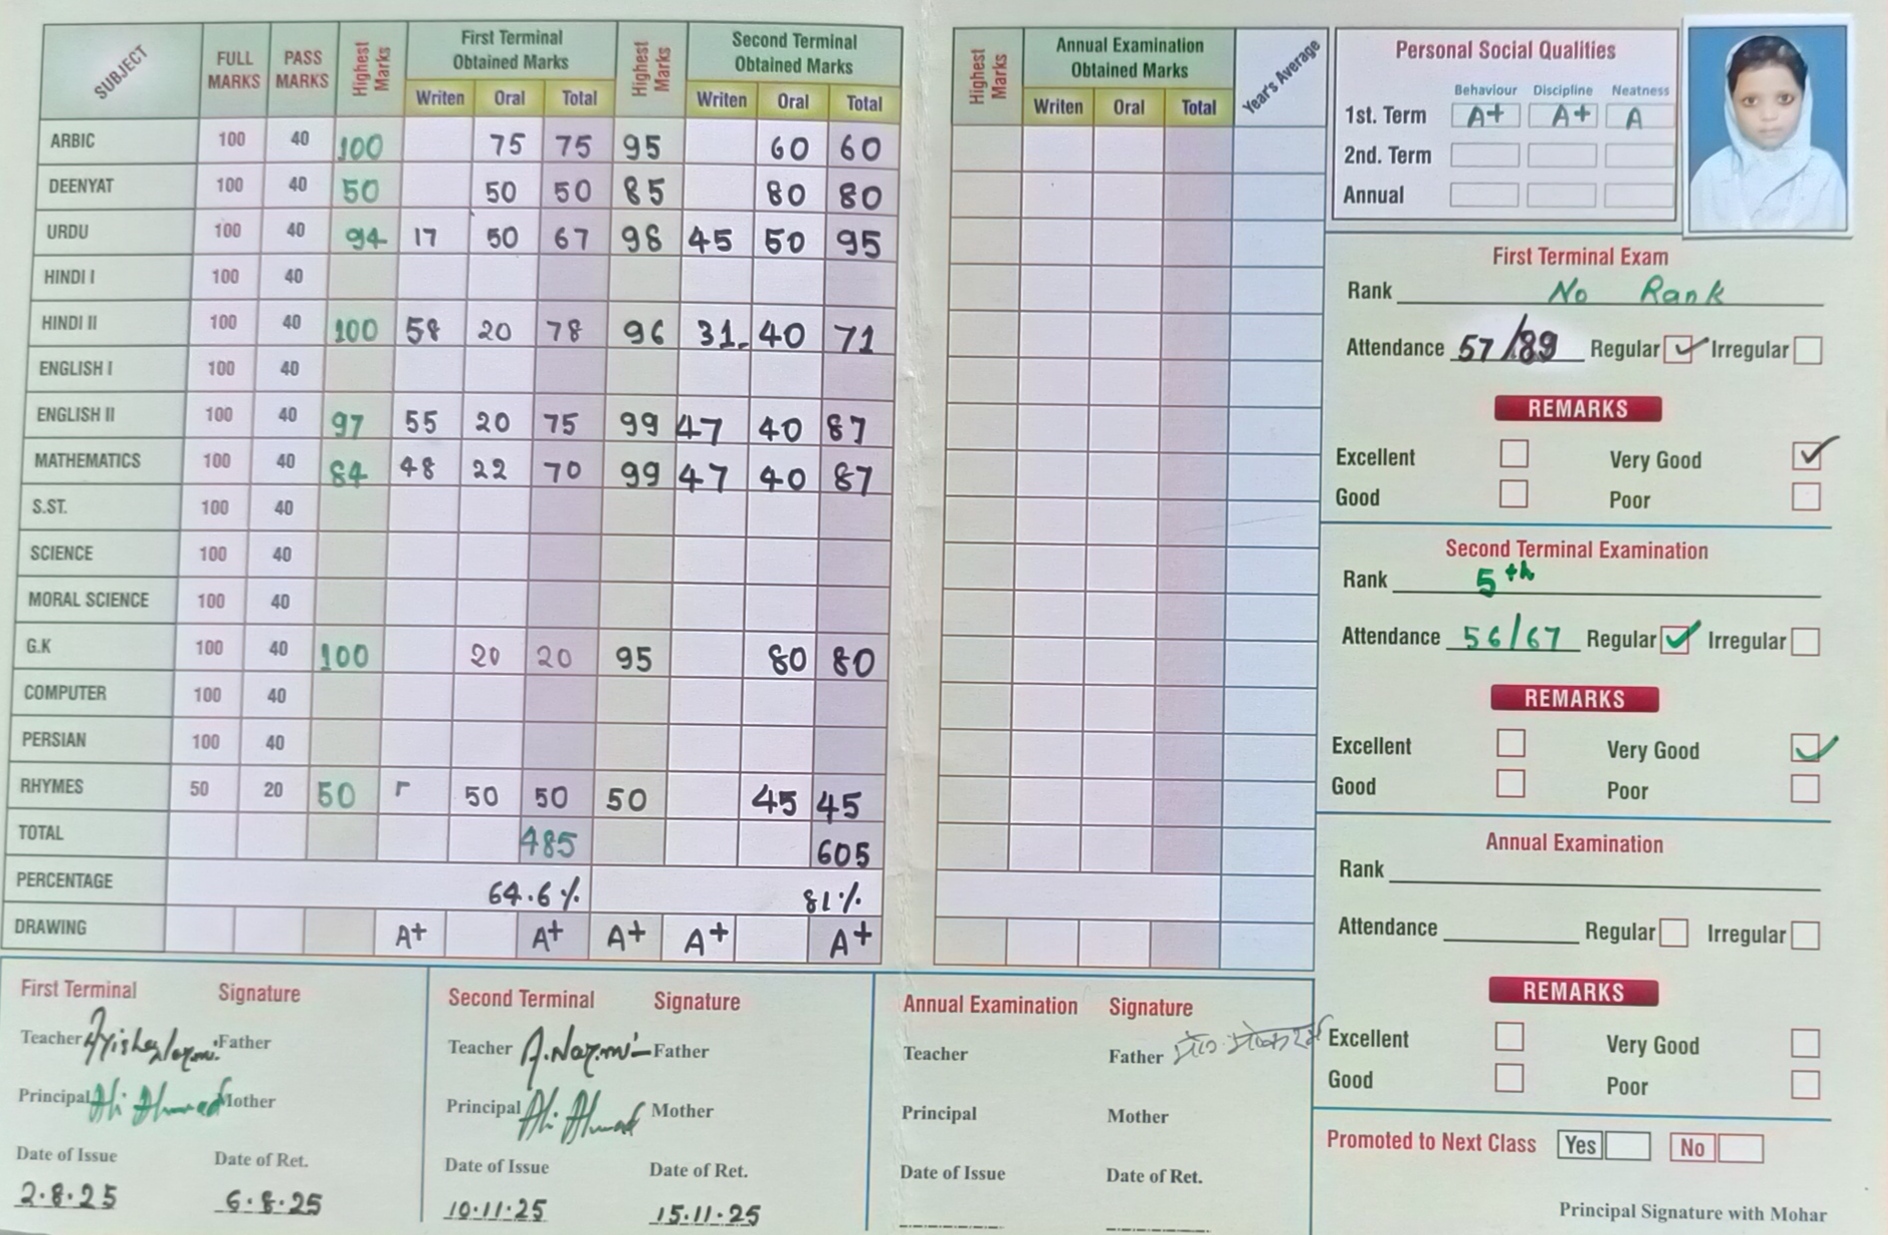 SUBJECT FULL MARKS PASS MARKS Highest Marks First Terminal Obtained Marks Highest Marks Second Terminal Obtained Marks
Writen Oral Total Writen Oral Total
ARBIC 100 40 100 75 75 95 60 60
DEENYAT 100 40 50 50 50 85 80 80
URDU 100 40 94 17 50 67 98 45 50 95
HINDI I 100 40
HINDI II 100 40 100 58 20 78 96 31. 40 71
ENGLISH I 100 40
ENGLISH II 100 40 97 55 20 75 99 47 40 87
MATHEMATICS 100 40 84 48 22 70 99 47 40 87
S.ST. 100 40
SCIENCE 100 40
MORAL SCIENCE 100 40
G.K 100 40 100 20 20 95 80 80
COMPUTER 100 40
PERSIAN 100 40
RHYMES 50 20 50 50 50 50 45 45
TOTAL 485 605
PERCENTAGE 64.6% 81%
DRAWING A+ A+ A+ A+ A+
First Terminal Signature
Teacher Father
Principal Ali Ahmad Mother
Date of Issue Date of Ret.
2.8.25 6.8.25
Second Terminal Signature
Teacher A.Nazmi Father
Principal Ali Ahmad Mother
Date of Issue Date of Ret.
10.11.25 15.11.25
Highest Marks Annual Examination Obtained Marks Year's Average
Writen Oral Total
Annual Examination Signature
Teacher Father
Principal Mother
Date of Issue Date of Ret.
Personal Social Qualities
Behaviour Discipline Neatness
1st. Term A+ A+ A
2nd. Term
Annual
First Terminal Exam
Rank No Rank
Attendance 57/89 Regular ✓ Irregular
REMARKS
Excellent Very Good ✓
Good Poor
Second Terminal Examination
Rank 5th
Attendance 56/67 Regular ✓ Irregular
REMARKS
Excellent Very Good ✓
Good Poor
Annual Examination
Rank
Attendance Regular Irregular
REMARKS
Excellent Very Good
Good Poor
Promoted to Next Class Yes No
Principal Signature with Mohar